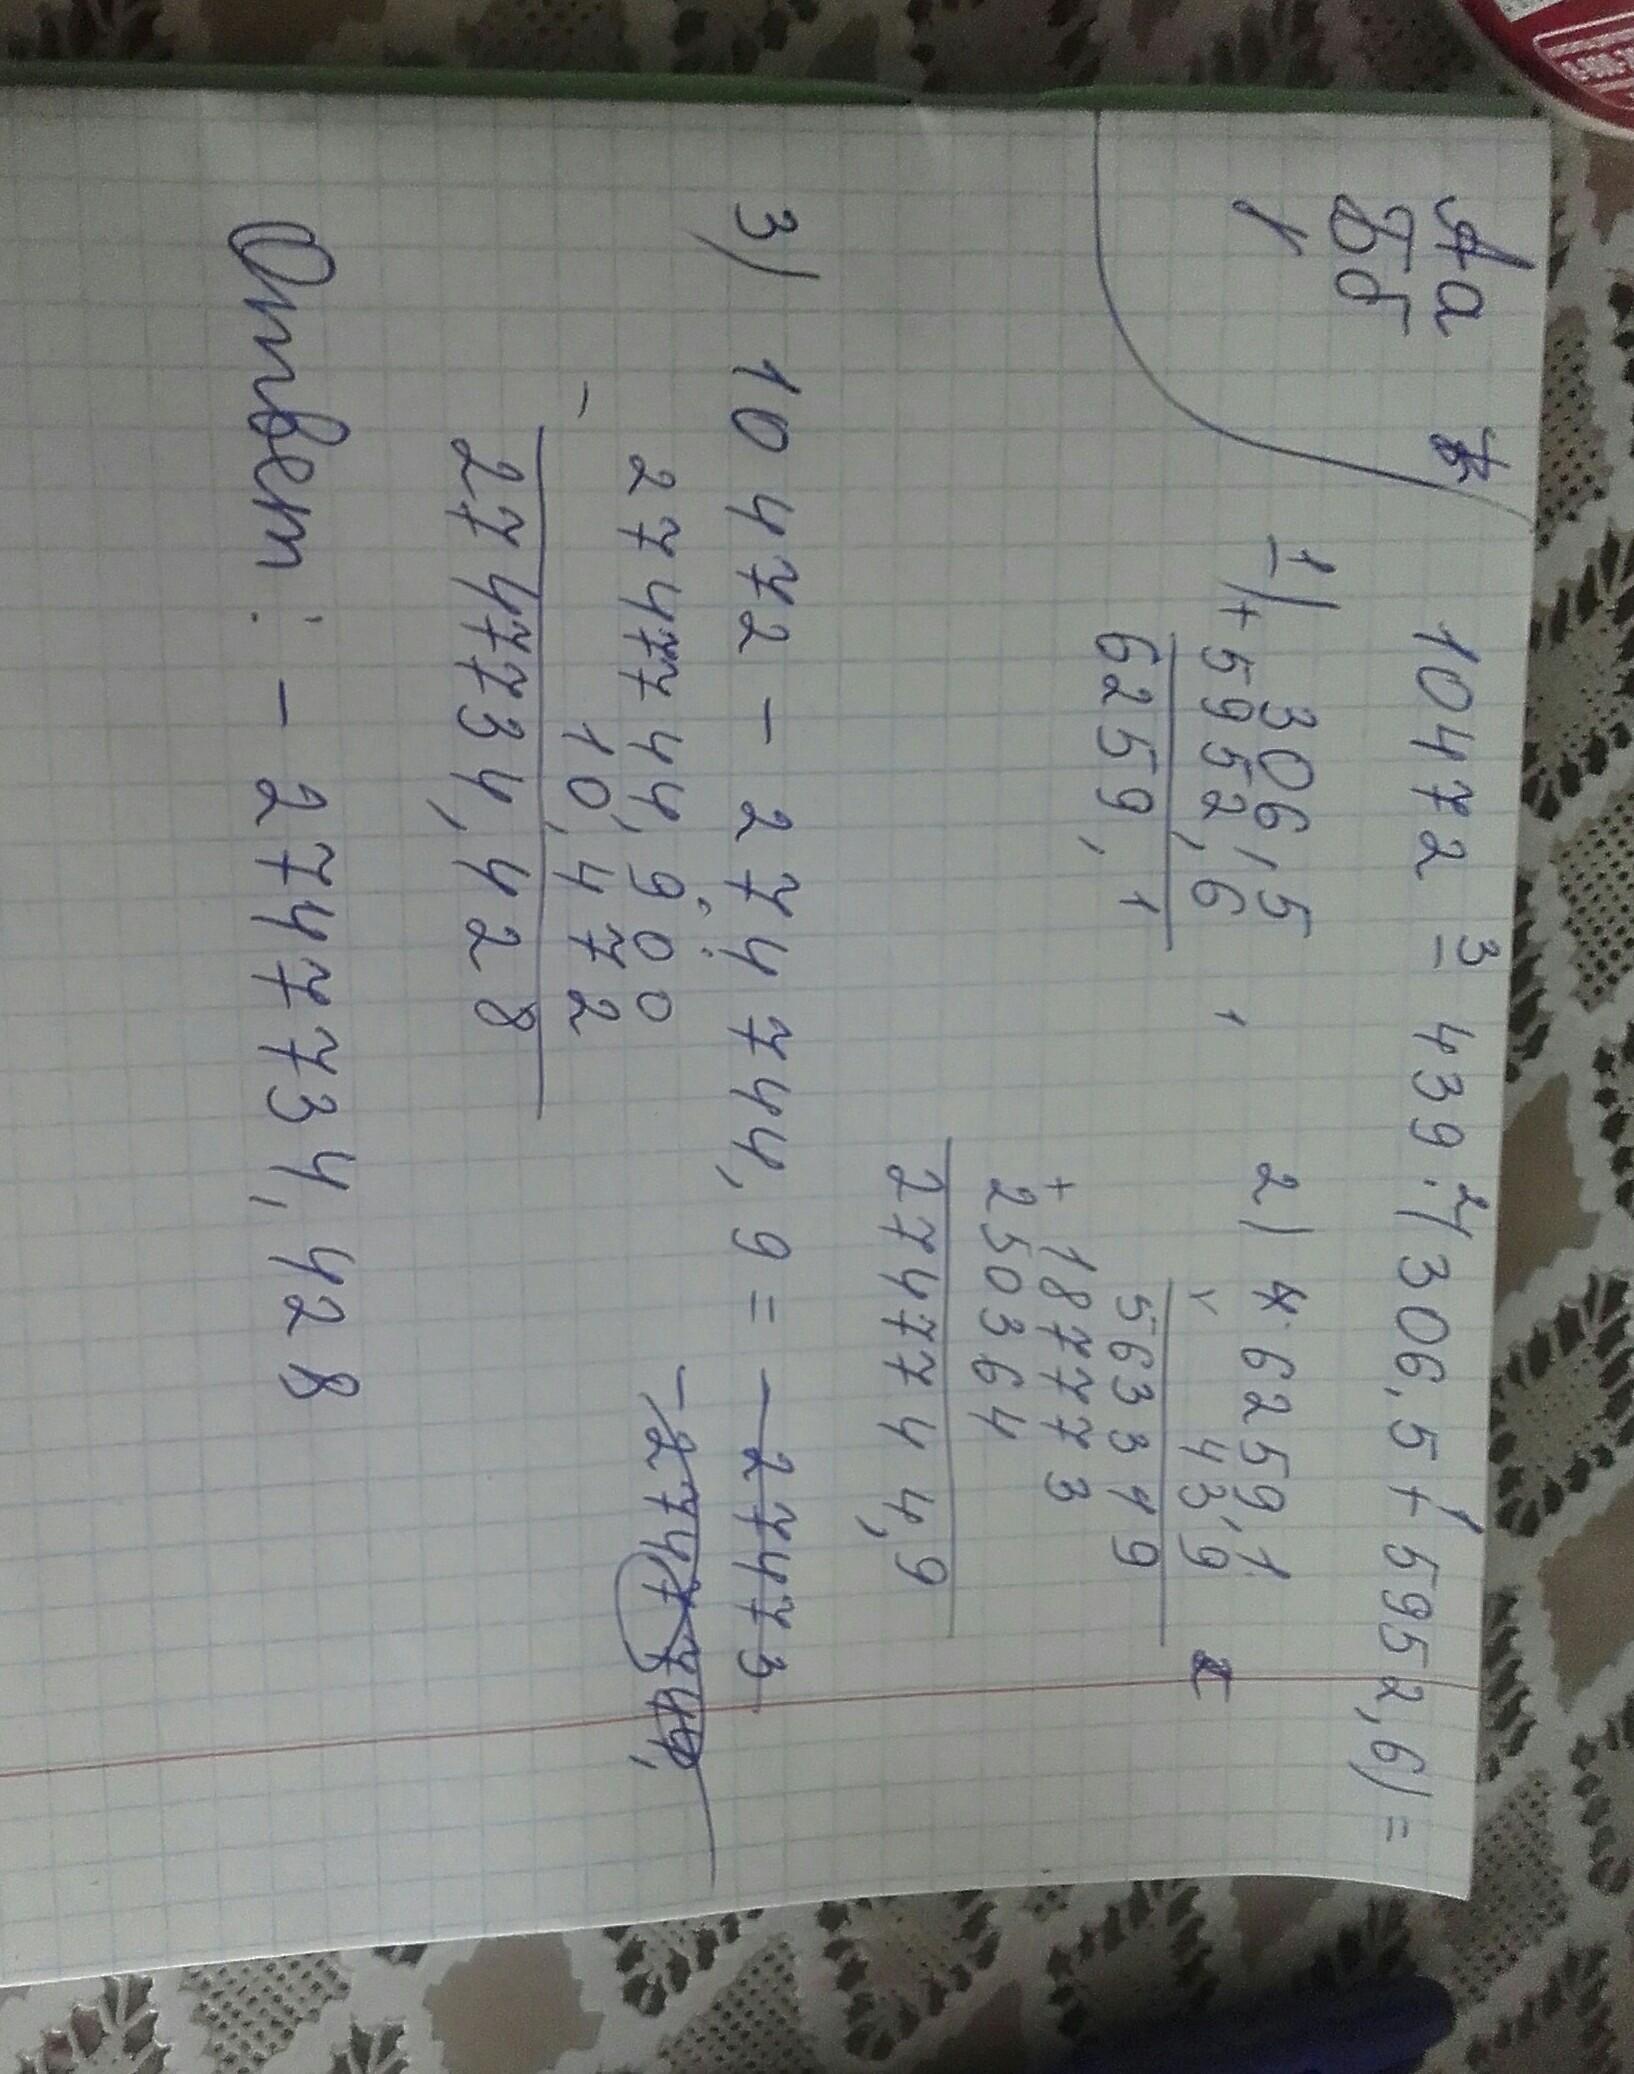 Аа
Бб
1
10472 - 439 · (306,5 + 5952,6) =
3 2 1
1) 306,5
+ 5952,6
6259,1
2) × 6259,1
439
563319
+ 187773
250364
2747744,9
3) 10472 - 2747744,9 = - 27473
- 2747744,900
10,472
2747734,428
Ответ: - 2747734,428